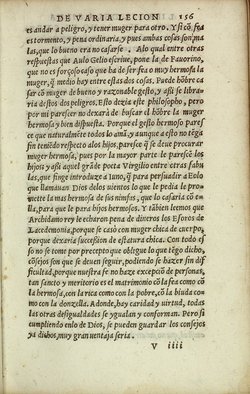 DE VARIA LECION 156
es andar a peligro, y tener muger para otro. Y est
tormento, y pena ordinaria, y pues ambas cosas son ma
las, que lo bueno era no casarse. Alo qual entre otras
respuestas que Aulo Gelio escriue, pone la de Fauorino,
que no es forçoso caso que ha de ser fea o muy hermosa la
muger, q̃ medio ay entre estas dos cosas. Puede hõbre ca
sar cõ muger de bueno y razonable gesto, y assi se libra
ria destos dos peligros. Esto dezia este philosopho, pero
por mi parescer no dexara de buscar el hõbre la muger
hermosa y bien dispuesta. Porque lo hermoso paresce
es que naturalmẽte todos lo amã, y aunque a esto no sẽ aya
sin tenido respecto alos hijos, paresce que se deue procurar
muger hermosa, pues por la mayor parte le parescẽ los
hijos y assi aquel grãde poeta Virgilio entre otras fabu
las, que finge introduze a Iuno, q̃ para persuadir a Eolo
que llamauan Dios delos vientos lo que le pedia le pro
mette la mas hermosa de sus nimfas, que lo casaria cõ e-
lla, para que le para hijos hermosos. Y tãbien leemos que
Archidamo rey le echaron pena de dineros los Eforos de
Lacedemonia, porque se casò con muger chica de cuerpo,
porque dexaria succession de estatura chica. Con todo e-
sto no se tome por precepto que obligue lo que tẽgo dicho,
cõsejos son que se deuen seguir, podiendo se hazer sin dif
ficultad, porque nuestra fe no haze excepciõ de personas,
tan sancto y meritorio es el matrimonio cõ la fea como cõ
la hermosa, con la rica como con la pobre, cõ la biuda co
mo con la donzella. Adonde, hay caridad y virtud, todas
las otras desigualdades se ygualan y conforman. Pero si
cumpliendo en lo de Dios, se pueden guardar los consejos
ya dichos, muy gran ventaja seria.
V iiii